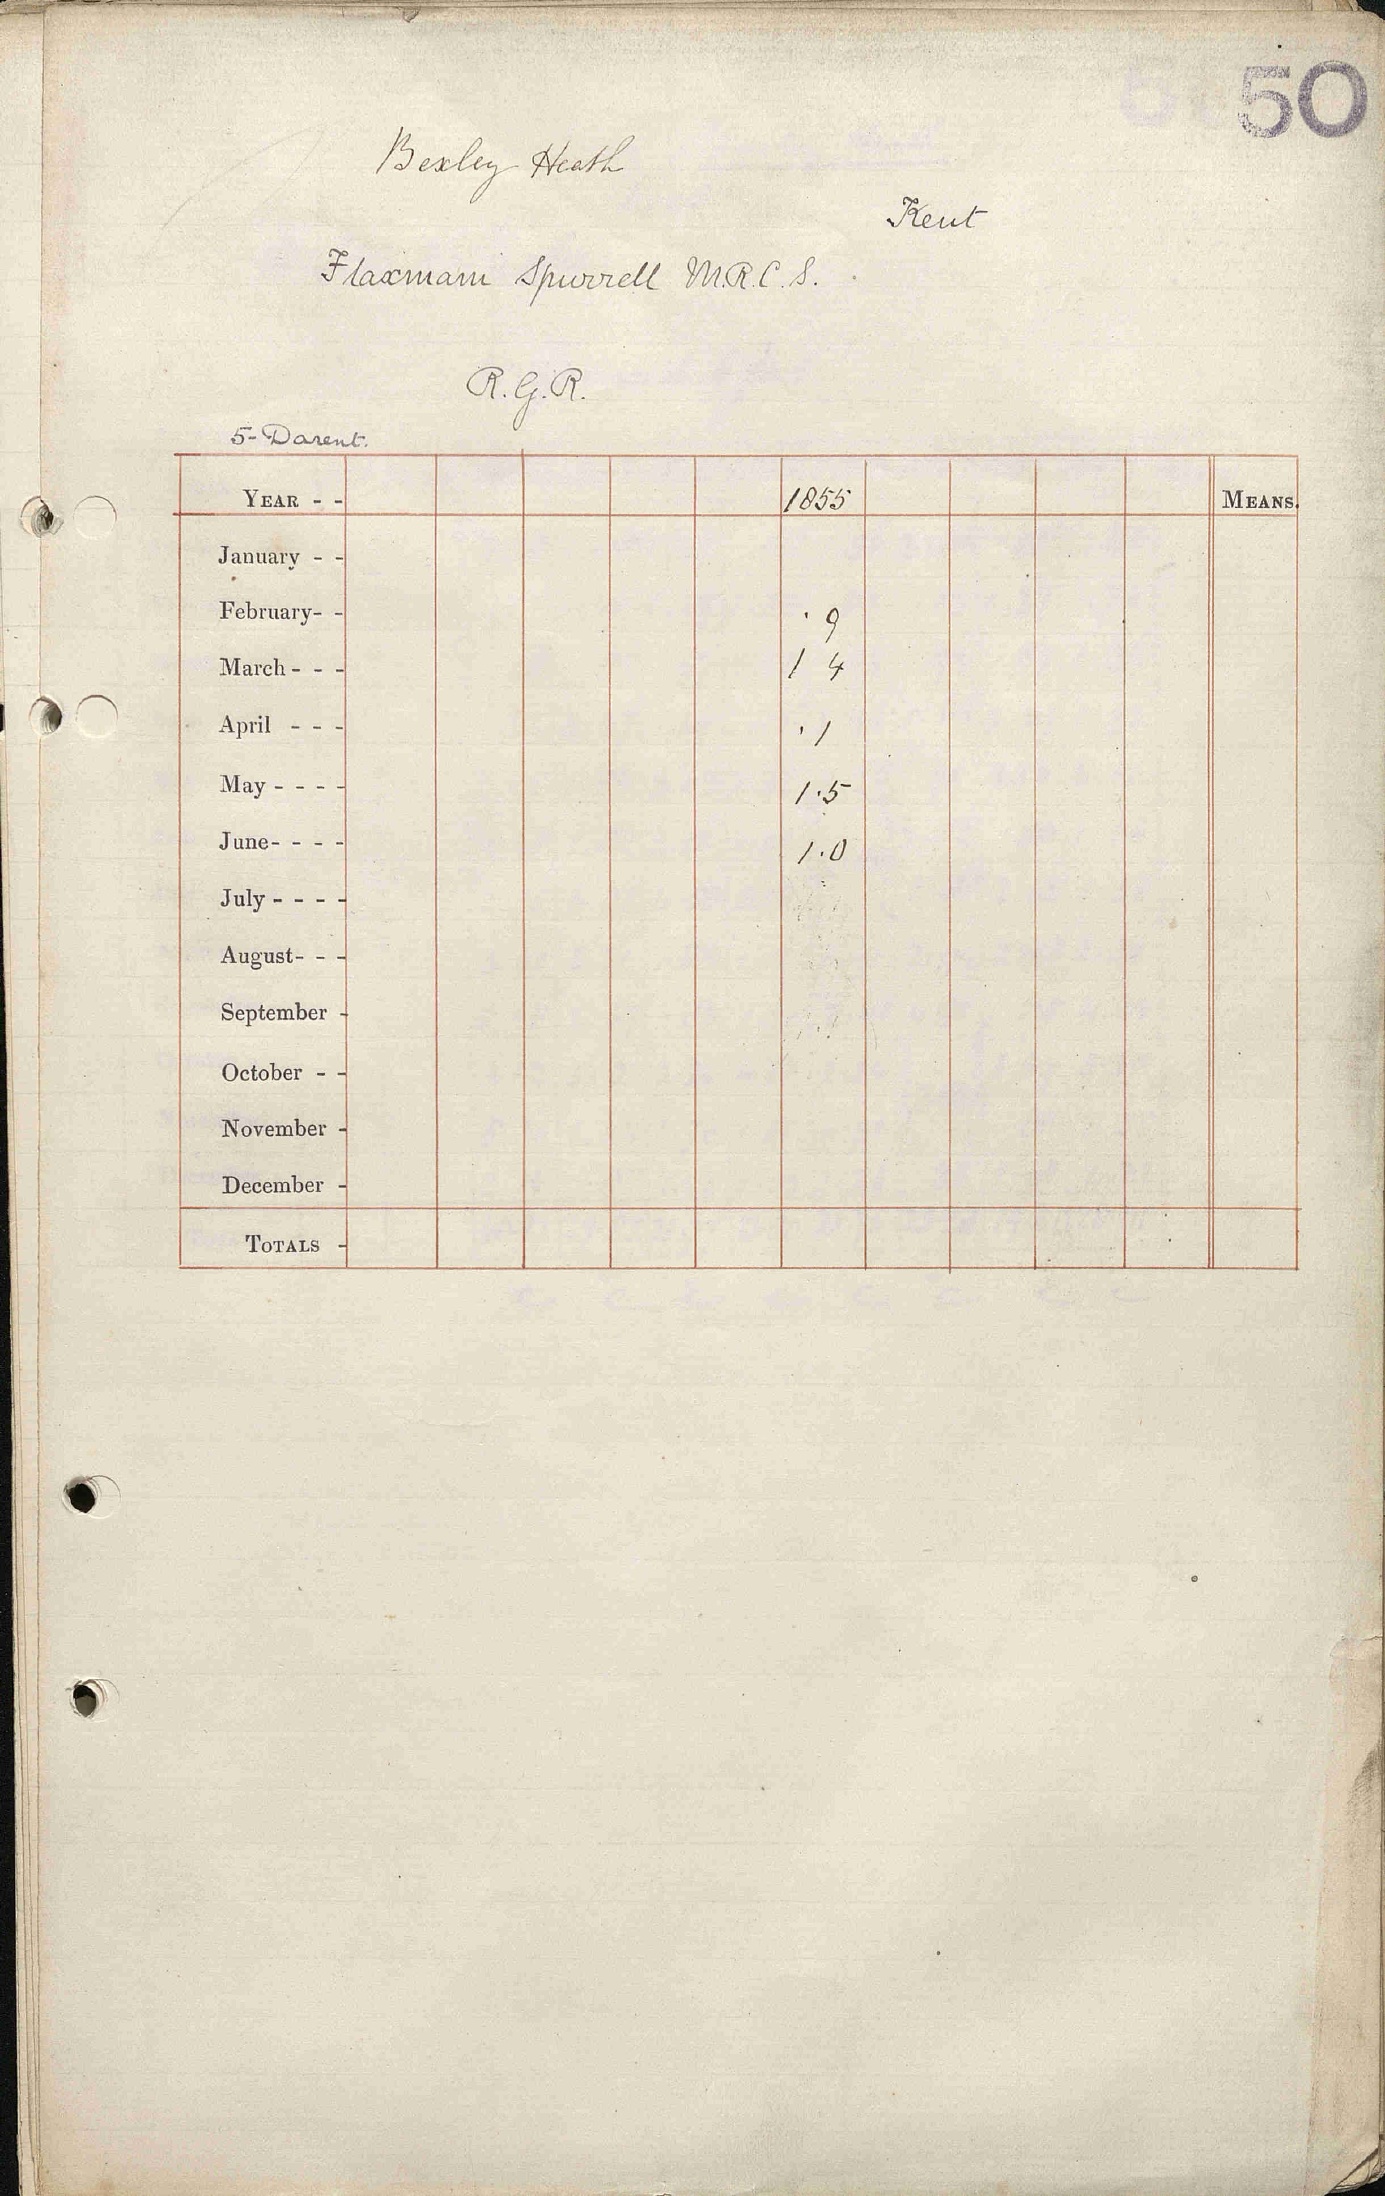 50
Bexley Heath
Kent
Flaxmam Spurrell M.R.C.S.
R.G.R.
5-Darent.
YEAR - - 1855 MEANS.
January - -
February- - · 9
March - - - 1 4
April - - - · 1
May - - - - 1·5
June- - - - 1·0
July - - - -
August- - -
September -
October - -
November -
December -
TOTALS -